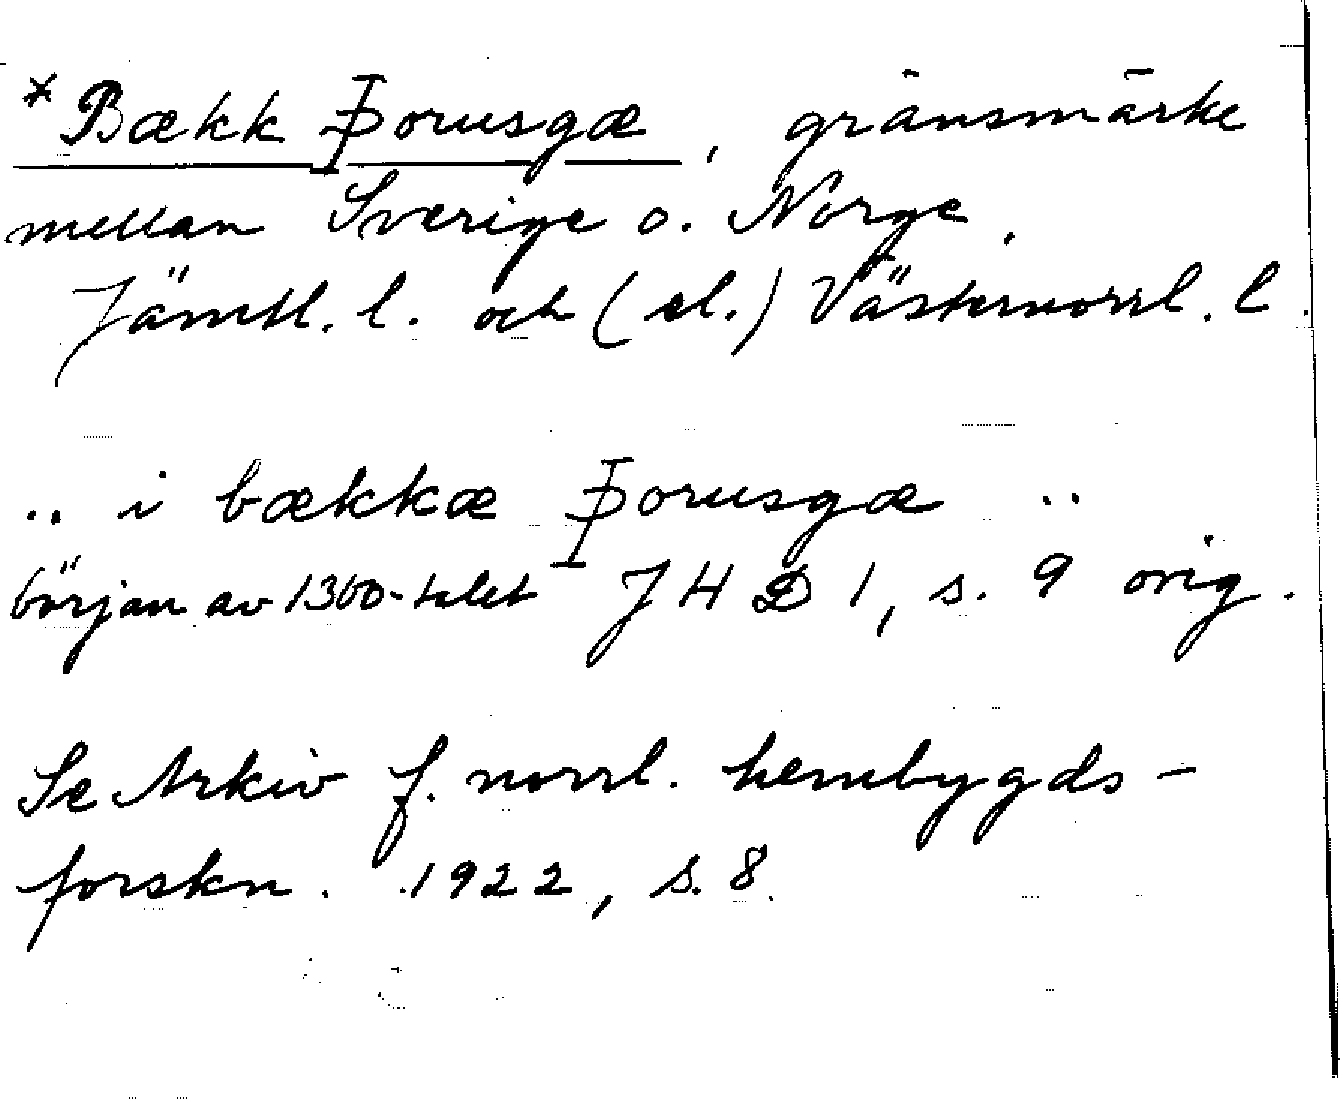 *Bækk Þorusgæ, gränsmärke
mellan Sverige o. Norge.
Jämtl. l. och (el.) Västernorrl. l.
.. i bækkæ Þorusgæ ..
början av 1300-talet JHD 1, s. 9 orig.
Se Arkiv f. norrl. hembygds-
forskn. 1922, s. 8.